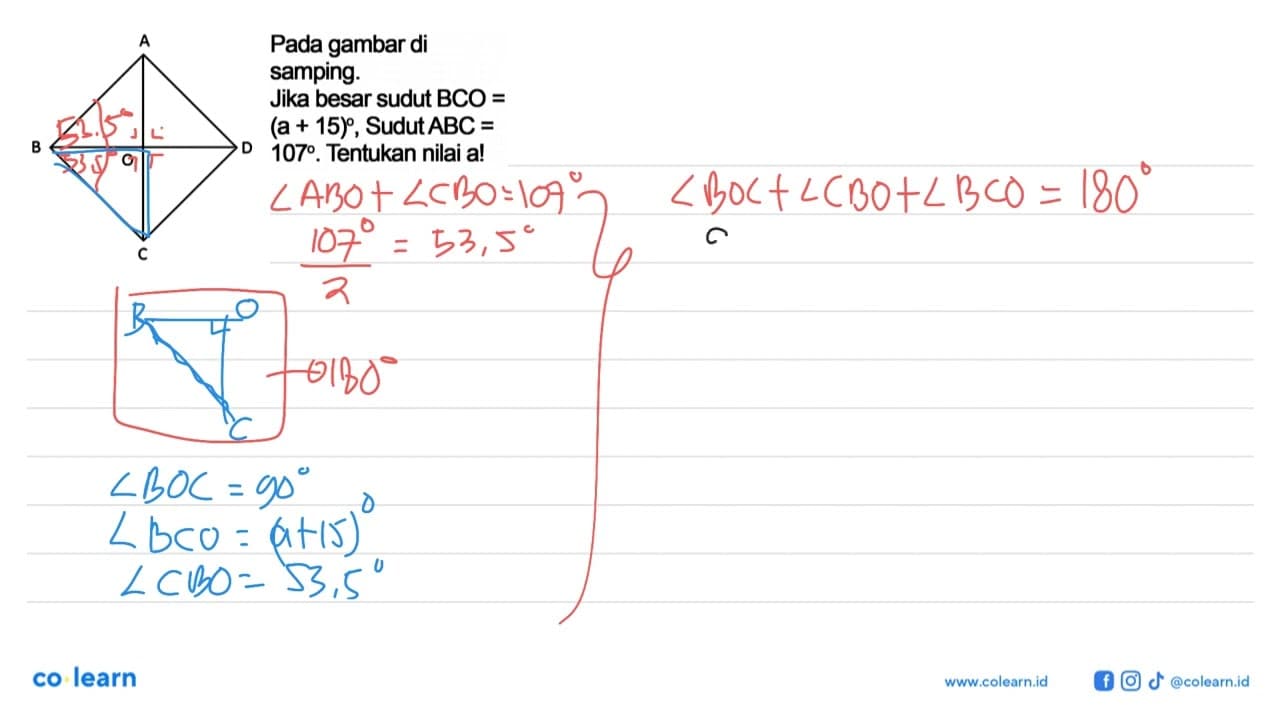 A
B
D
O
C
53.5°
53,5
Pada gambar di
samping.
Jika besar sudut BCO =
(a + 15)°, Sudut ABC =
107°. Tentukan nilai a!
∠ABO + ∠CBO = 107°
107° / 2 = 53,5°
B O
C
180°
∠BOC = 90°
∠BCO = (a+15)°
∠CBO = 53,5°
∠BOC + ∠CBO + ∠BCO = 180°
co learn
www.colearn.id
@colearn.id